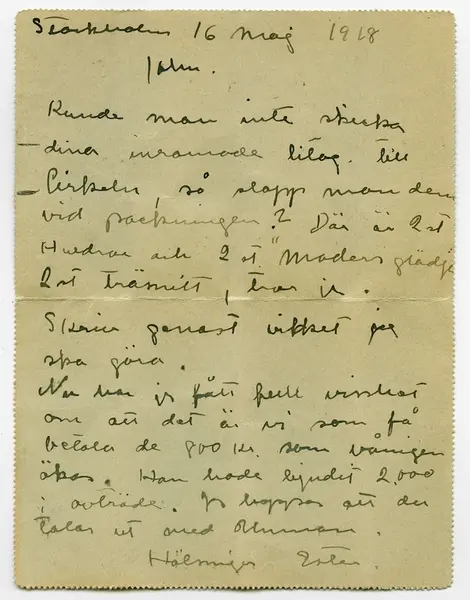 Stockholm 16 maj 1918
John.
Kunde man inte skicka
dina inramade litog. till
Cirkeln, så slapp man dem
vid packningen? Där är 2 st
och 2 st "Moders glädje
2 st träsnitt, tror jg.
Skriv genast vilket jag
ska göra.
Nu har jg fått full visshet
om att det är vi som få
betala de 800 kr. som våningen
ökas. Han hade bjudit 2,000
i avträde. Jg hoppas att du
talar ut med
Hälsningar Ester.